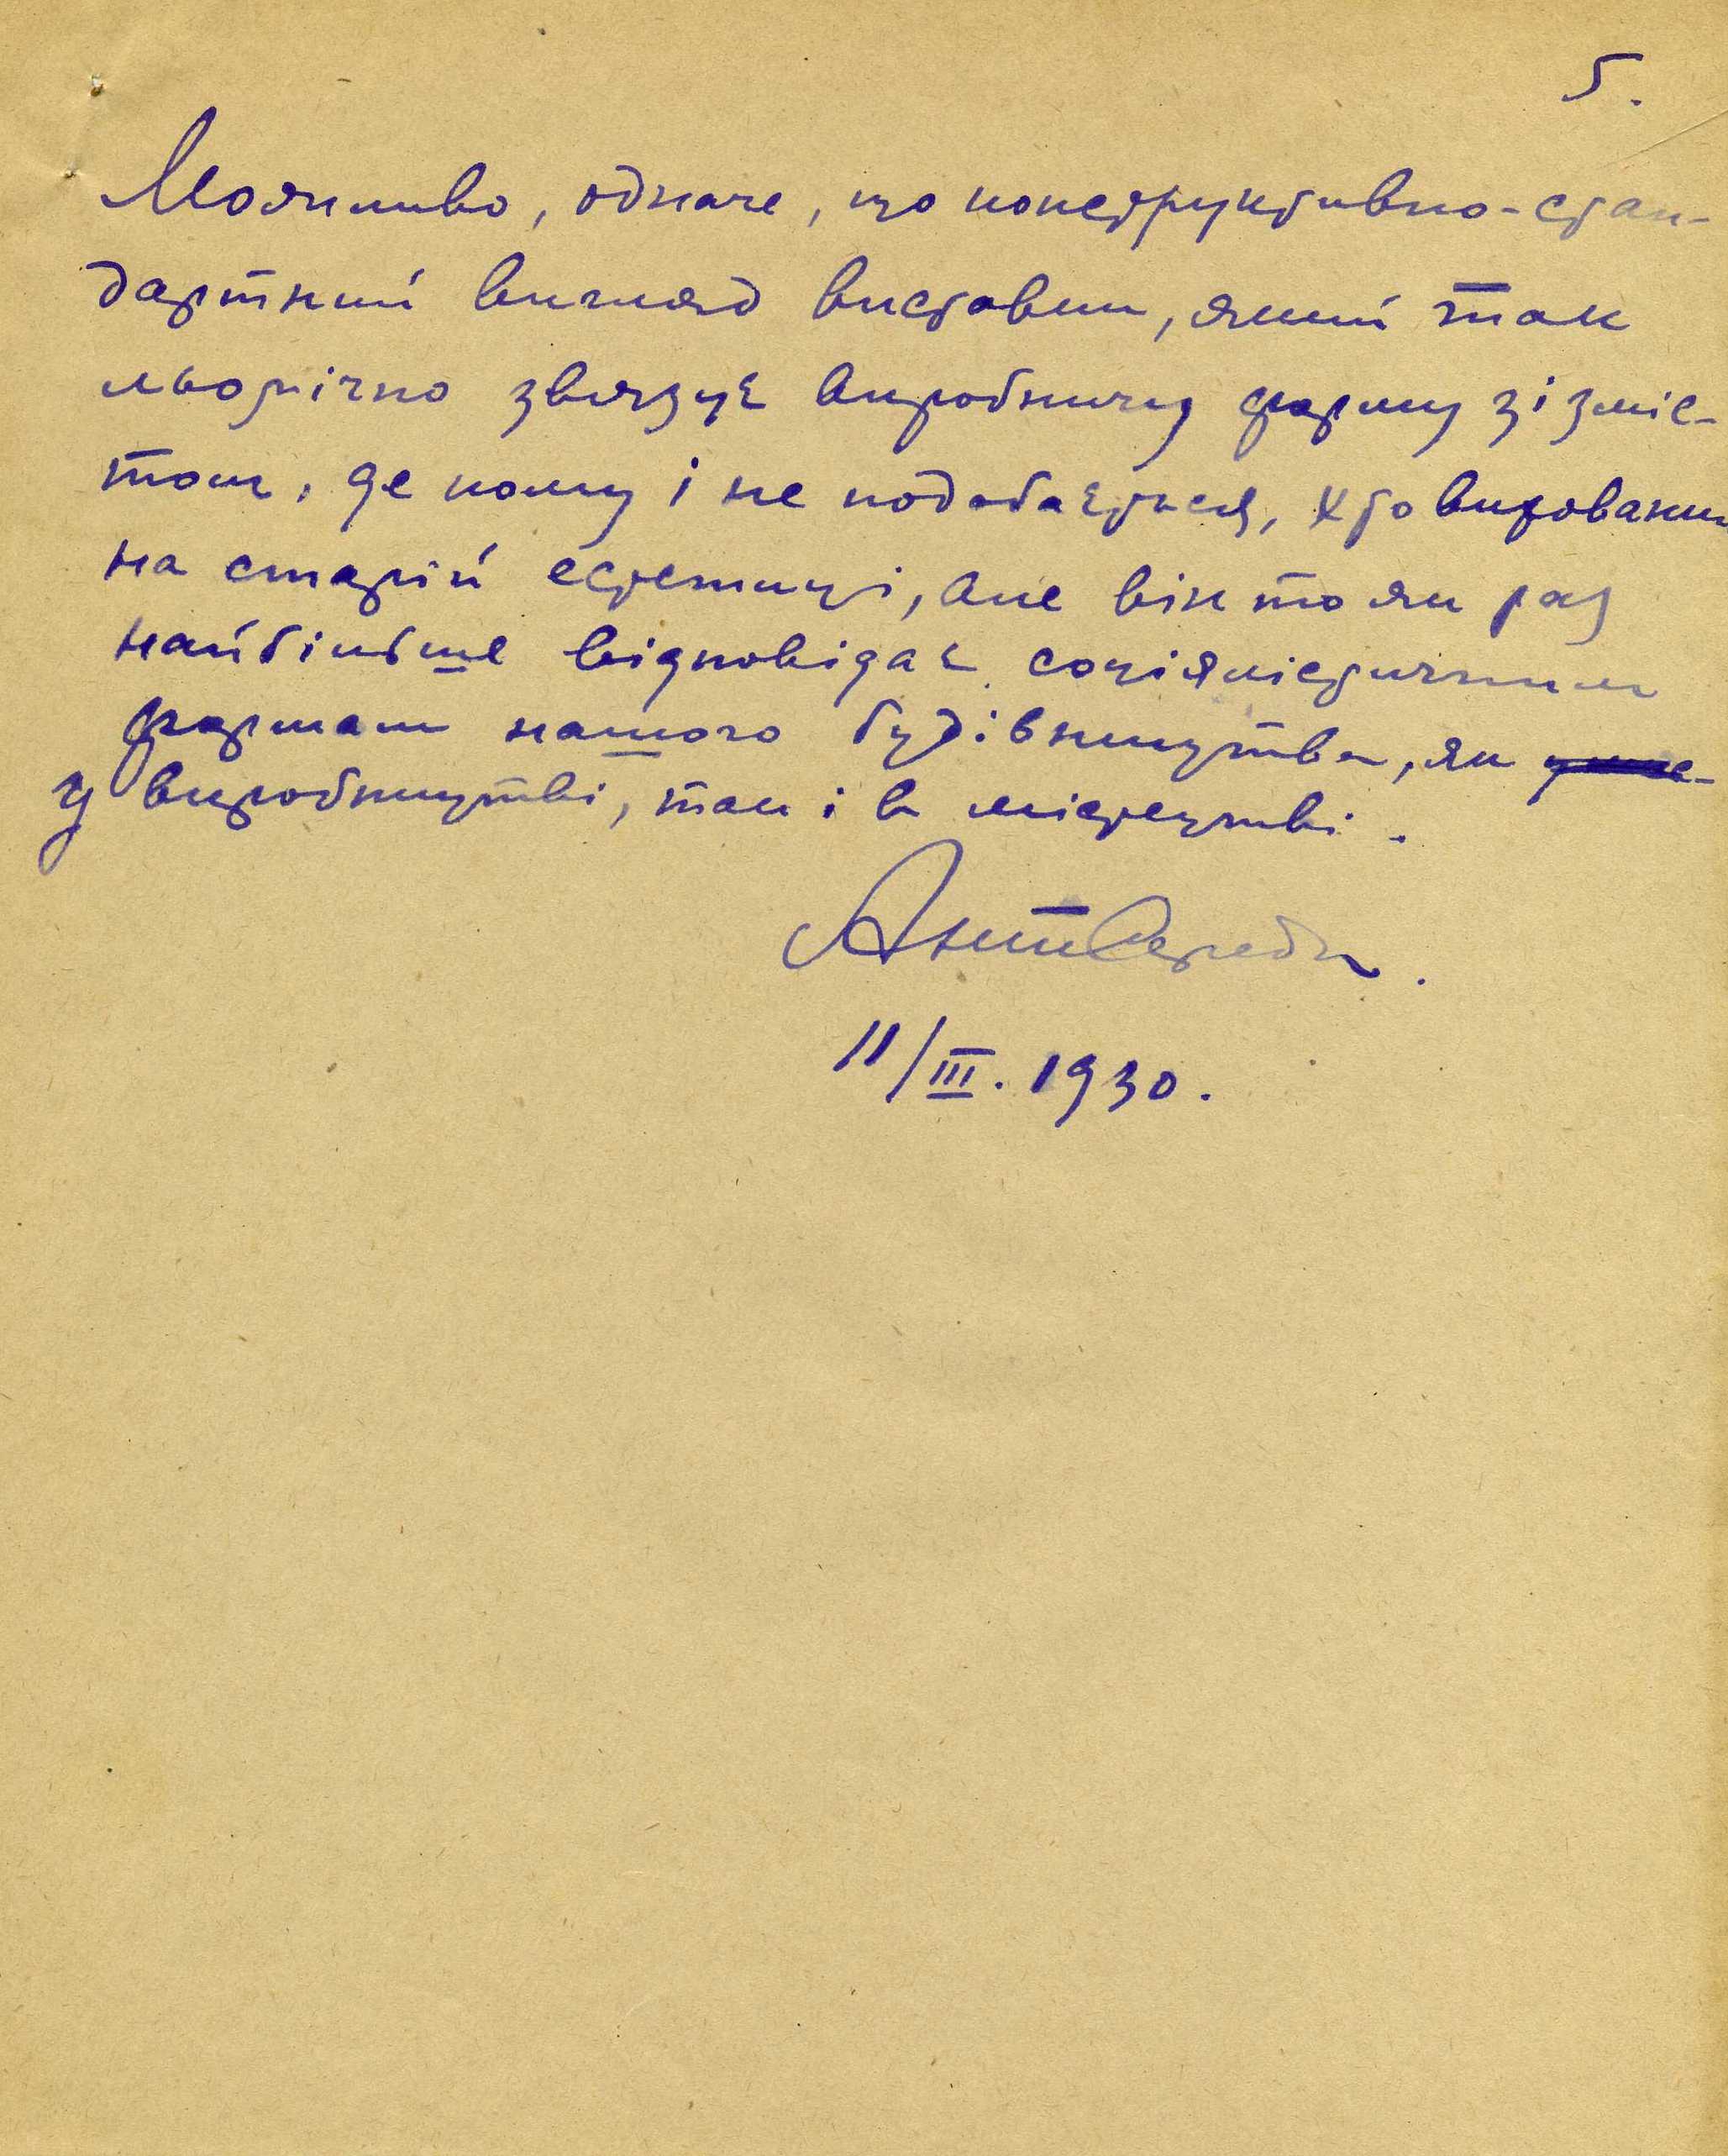 5.
Можливо, одначе, що конструктивно-стан-
дартний вигляд виставки, який так
льогічно звязує виробничу форму зі зміс-
том, де кому і не подобається, хто вихований
на старій естетиці, але він то як раз
найбільше відповідає соціялістичним
формам нашого будівництва, як
у виробництві, так і в мистецтві.
Ант Середа.
11/III. 1930.